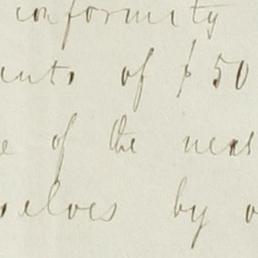 conformity
ants of $50
e of the near
selves by o